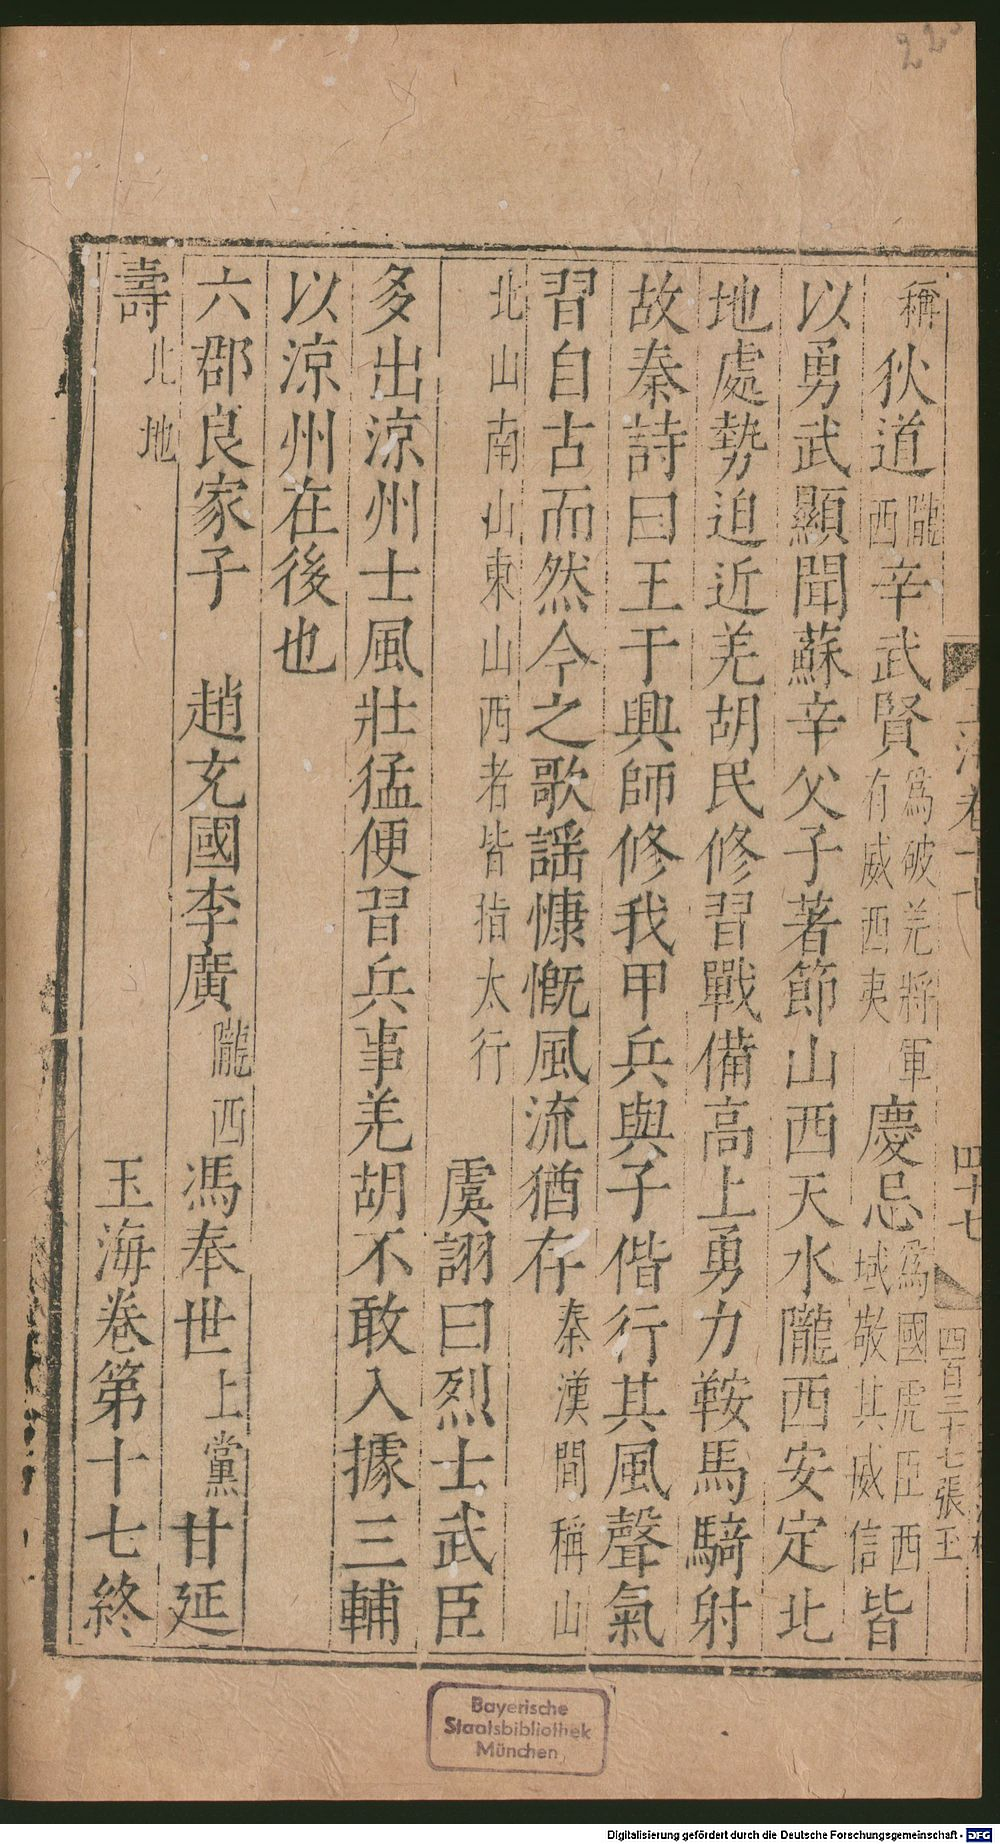 稱狄道隴西辛武賢爲破羌將軍有威西夷慶忌爲國虎臣西域敬其威信皆
以勇武顯聞蘇辛父子著節山西天水隴西安定北
地處勢迫近羌胡民修習戰備高上勇力鞍馬騎射
故秦詩曰王于興師修我甲兵與子偕行其風聲氣
習自古而然今之歌謡慷慨風流猶存秦漢間稱山
北山南山東山西者皆指太行 虞詡曰烈士武臣
多出涼州士風壯猛便習兵事羌胡不敢入據三輔
以涼州在後也
六郡良家子 趙充國李廣隴西馮奉世上黨甘延
壽北地 玉海卷第十七終
四十七
四百三十七張玉
Bayerische
Staatsbibliothek
München
Digitalisierung gefördert durch die Deutsche Forschungsgemeinschaft - DFG